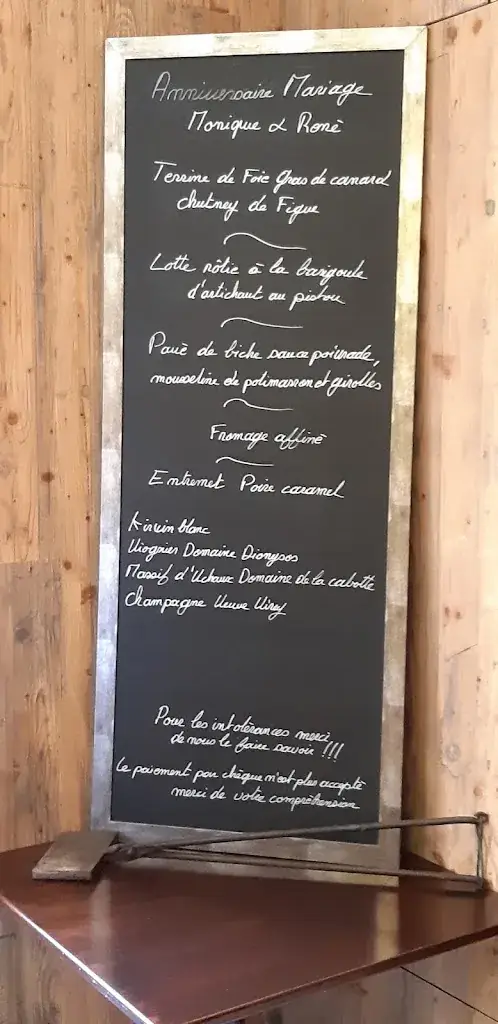 Anniversaire Mariage
Monique & Renè
Terrine de Foie Gras de canard
chutney de Figue
Lotte rôtie à la barigoule
d'artichaut au pistou
Pavè de biche sauce poivrade,
mousseline de potimarron et girolles
Fromage affinè
Entremet Poire caramel
Kir vin blanc
Viognier Domaine Dionysos
Massif d'Uchaux Domaine de la cabotte
Champagne Veuve Virey
Pour les intolérances merci
de nous le faire savoir !!!
Le paiement par chèque n'est plus accepté
merci de votre compréhension